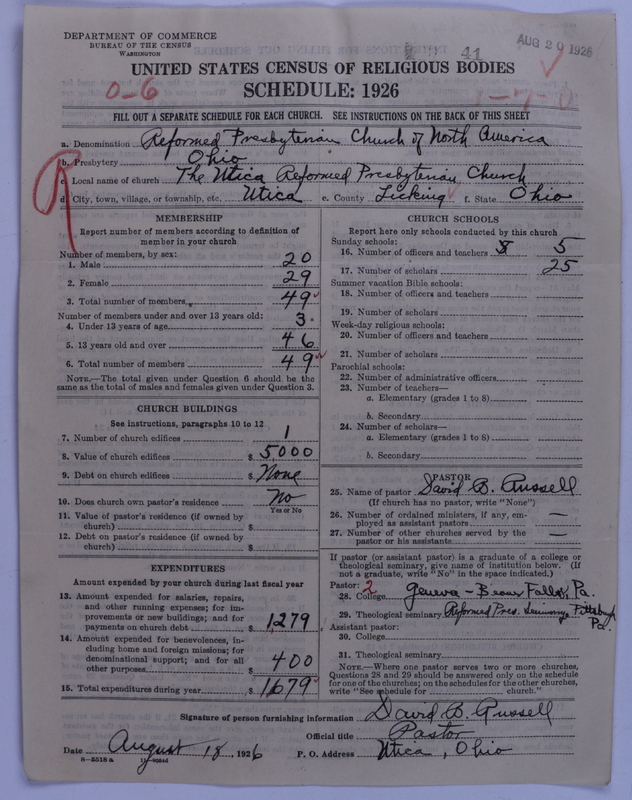 DEPARTMENT OF COMMERCE
BUREAU OF THE CENSUS
WASHINGTON
41
AUG 20 1926
UNITED STATES CENSUS OF RELIGIOUS BODIES
SCHEDULE: 1926
0-6
FILL OUT A SEPARATE SCHEDULE FOR EACH CHURCH. SEE INSTRUCTIONS ON THE BACK OF THIS SHEET
a. Denomination Reformed Presbyterian Church of North America
b. Presbytery Ohio
c. Local name of church The Utica Reformed Presbyterian Church
d. City, town, village, or township, etc. Utica e. County Licking f. State Ohio
MEMBERSHIP
Report number of members according to definition of
member in your church
Number of members, by sex:
1. Male 20
2. Female 29
3. Total number of members 49
Number of members under and over 13 years old:
4. Under 13 years of age 3
5. 13 years old and over 46
6. Total number of members 49
NOTE.—The total given under Question 6 should be the
same as the total of males and females given under Question 3.
CHURCH BUILDINGS
See instructions, paragraphs 10 to 12
7. Number of church edifices 1
8. Value of church edifices $ 5000
9. Debt on church edifices $ None
10. Does church own pastor's residence No
Yes or No
11. Value of pastor's residence (if owned by
church) $
12. Debt on pastor's residence (if owned by
church) $
EXPENDITURES
Amount expended by your church during last fiscal year
13. Amount expended for salaries, repairs,
and other running expenses; for im-
provements or new buildings; and for
payments on church debt $ 1279
14. Amount expended for benevolences, in-
cluding home and foreign missions; for
denominational support; and for all
other purposes $ 400
15. Total expenditures during year $ 1679
CHURCH SCHOOLS
Report here only schools conducted by this church
Sunday schools:
16. Number of officers and teachers 5
17. Number of scholars 25
Summer vacation Bible schools:
18. Number of officers and teachers
19. Number of scholars
Week-day religious schools:
20. Number of officers and teachers
21. Number of scholars
Parochial schools:
22. Number of administrative officers
23. Number of teachers—
a. Elementary (grades 1 to 8)
b. Secondary
24. Number of scholars—
a. Elementary (grades 1 to 8)
b. Secondary
PASTOR
25. Name of pastor David B. Russell
(If church has no pastor, write "None")
26. Number of ordained ministers, if any, em-
ployed as assistant pastors —
27. Number of other churches served by the
pastor or his assistants —
If pastor (or assistant pastor) is a graduate of a college or
theological seminary, give name of institution below. (If
not a graduate, write "No" in the space indicated.)
Pastor: 2
28. College Geneva - Beaver Falls, Pa.
29. Theological seminary Reformed Pres. Seminary, Pittsburgh
Pa.
Assistant pastor:
30. College
31. Theological seminary
NOTE.—Where one pastor serves two or more churches,
Questions 28 and 29 should be answered only on the schedule
for one of the churches; on the schedules for the other churches,
write "See schedule for ________ church."
Signature of person furnishing information David B. Russell
Official title Pastor
Date August 18, 1926 P. O. Address Utica, Ohio